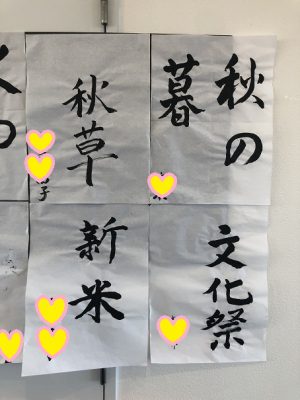 秋の
暮
秋草
子
文化祭
新米
の